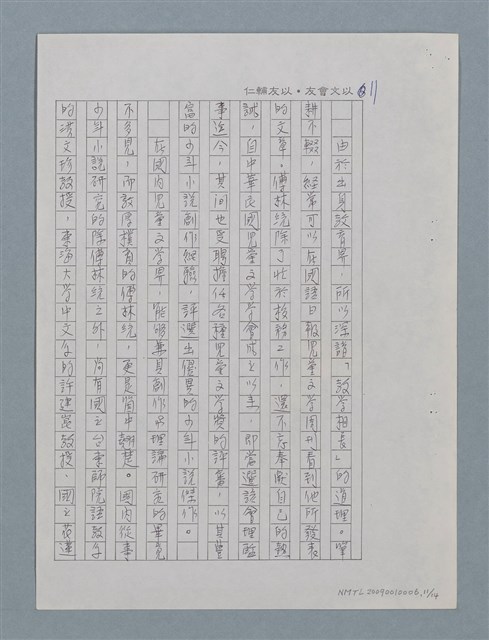 以文會友・以友輔仁
11
由於出身教育界,所以深諳「教學相長」的道理。筆
耕不輟,經常可以在國語日報兒童文學周刊看到他所發表
的文章。傅林統除了忙於校務工作,還不忘奉獻自己的熱
誠,自中華民國兒童文學學會成立以來,即當選該會理監
事迄今,其間也受聘擔任各種兒童文學獎的評審,以其豐
富的少年小說創作經驗,評選出優異的少年小說傑作。
在國內兒童文學界,能夠兼具創作與理論研究的畢竟
不多見,而敦厚樸實的傅林統,更是箇中翹楚。國內從事
少年小說研究的除傅林統之外,尚有國立台東師院語教系
的洪文珍教授,東海大學中文系的許建崑教授,國立花蓮
NMTL20090010006,11/14